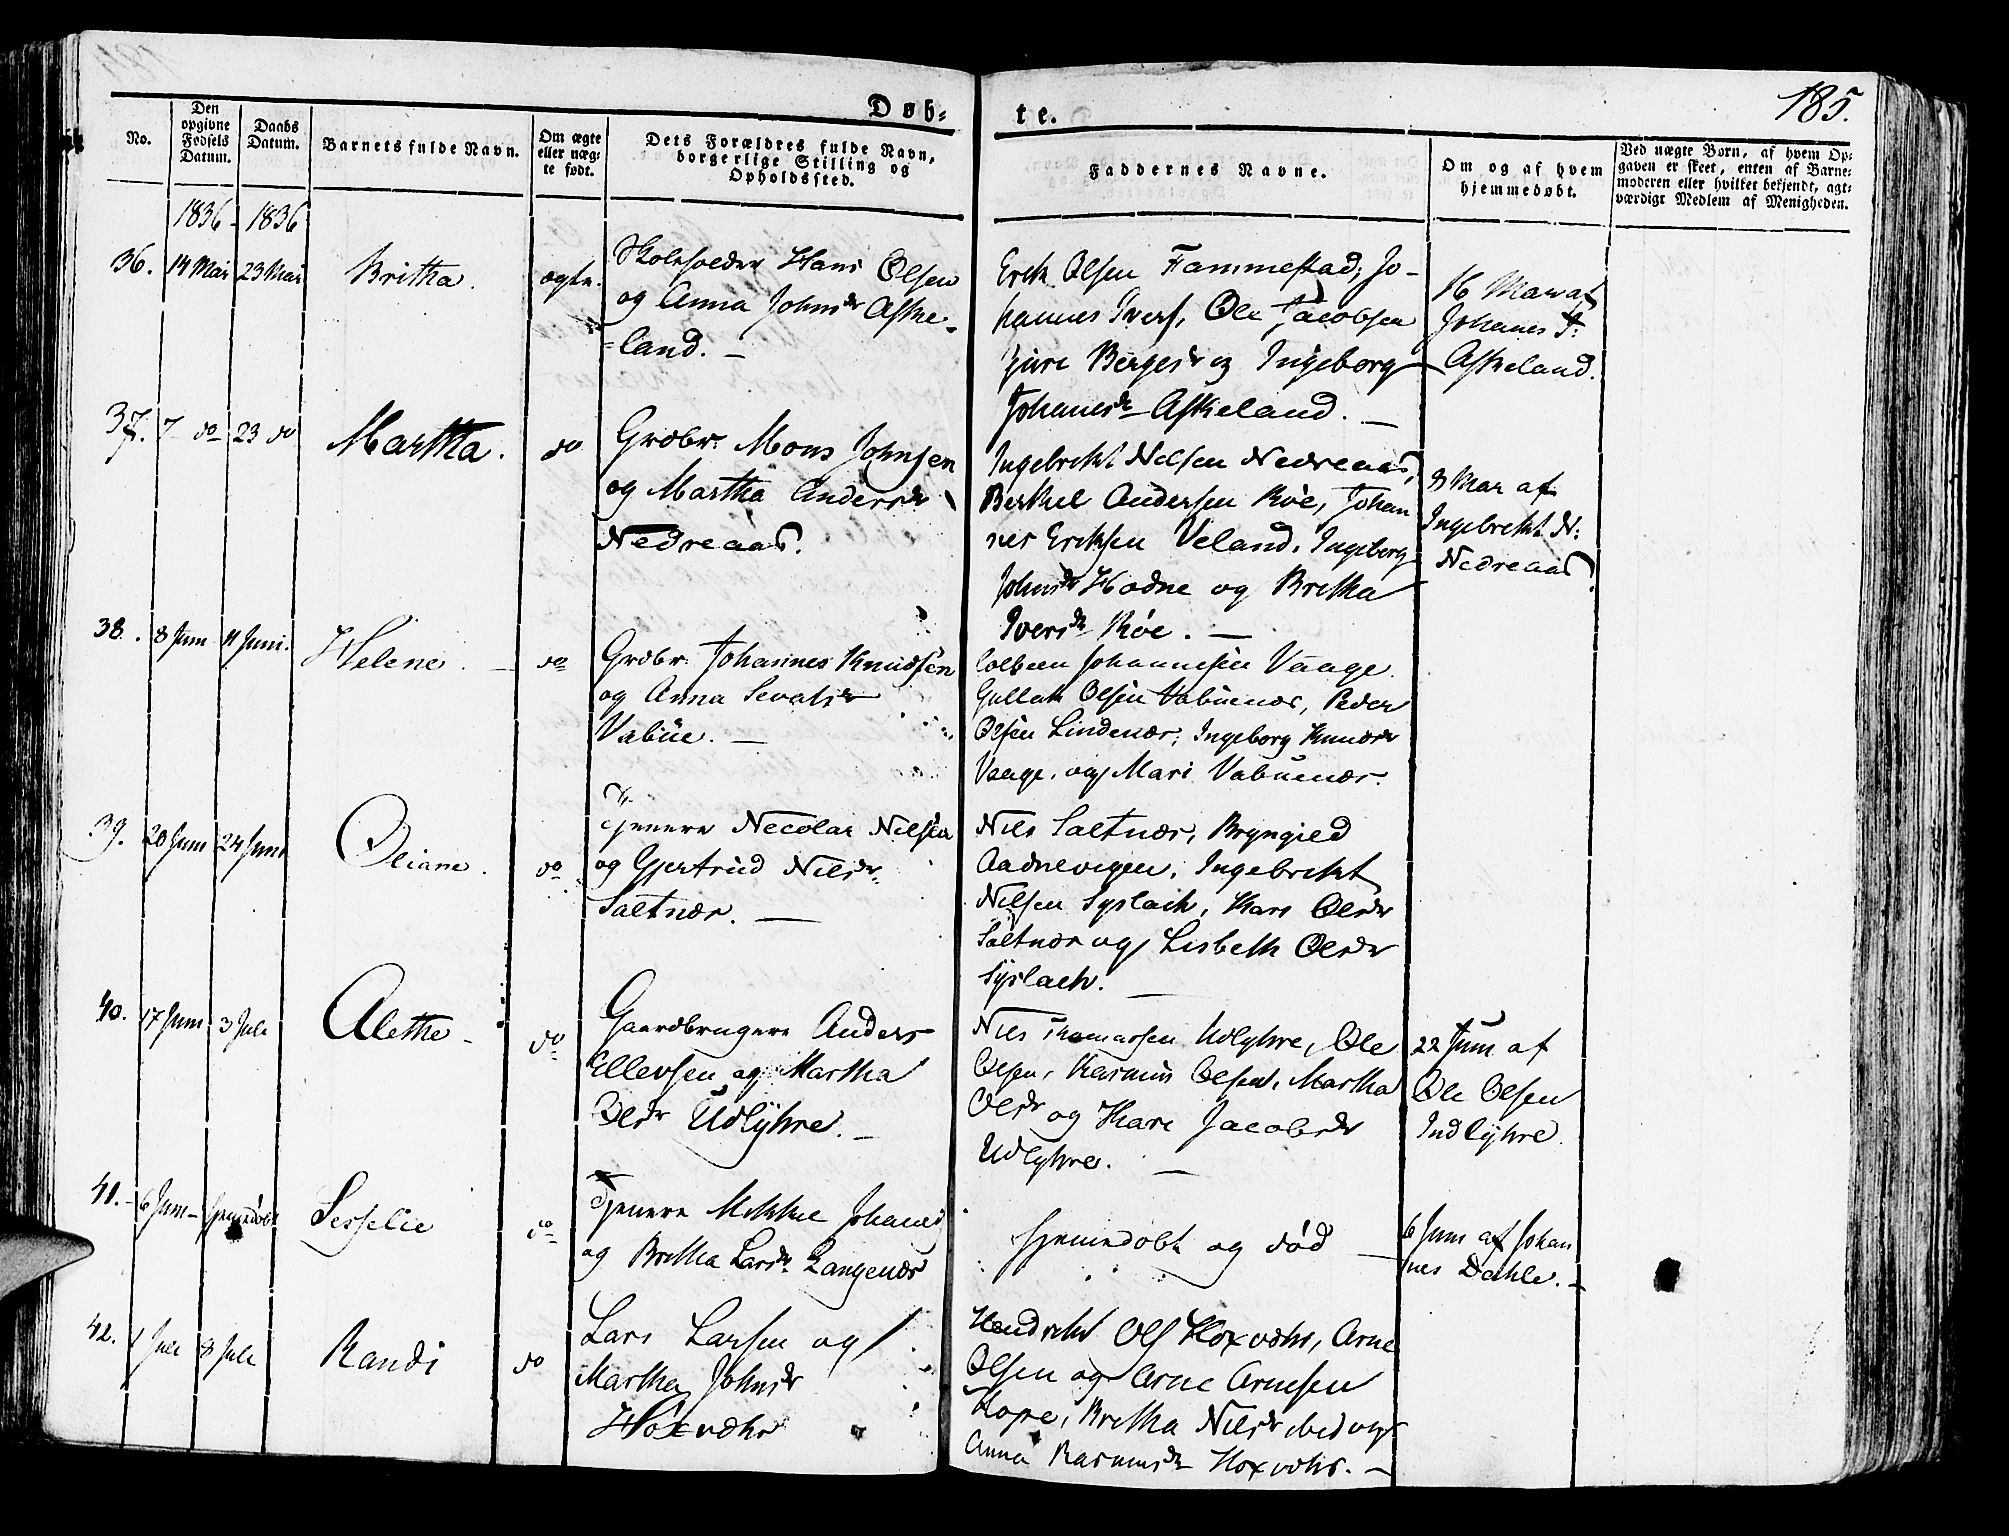 185.
Døb-
te.
No.
Den opgivne Fødsels Datum.
Daabs Datum.
Barnets fulde Navn.
Om ægte eller uægte født.
Dets Forældres fulde Navn, borgerlige Stilling og Opholdssted.
Faddernes Navne.
Om og af hvem hjemmedøbt.
Ved uægte Børn, af hvem Opgaven er skeet, enten af Barnemoderen eller hvilket bekjendt, agtværdigt Medlem af Menigheden.
1836 - 1836
36. 14 Mai 23 Mai Britha. ægte.
Skoleholder Hans Olsen
og Anna Johnsdr Aske-
land. —
Erik Olsen Tammestad, Jo-
hannes Ivers, Ole Jacobsen
Gure Bergesdr og Ingeborg
Johanesdr Askeland. —
16 Mai af
Johanes I:
Askeland.
37. 7 do 23 do Martha. do
Grdbr. Mons Johnsen
og Martha Andersdr
Nedreaas.
Ingebrikt Nelsen Nedreaas,
Berthel Andersen Røe, Johan
nes Eriksen Veland, Ingeborg
Johnsdr Hodne og Britha
Iversdr Røe. —
8 Mai af
Ingebrikt N:
Nedreaas
38. 8 Juni 11 Juni. Helene. do
Grdbr. Johannes Knudsen
og Anna Sevalsdr
Vabüe. —
Colbeen Johannesen Vaage.
Gullak Olsen Vabuenær, Peder
Olsen Lindenær, Ingeborg Knudsdr
Vaage, og Mari Vabuenær.
39. 20 Juni 24 Juni Oliane. do
Tjenere Necolai Nilsen
og Gjertrud Nilsdr
Saltnær. —
Nils Saltnær, Bryngjed
Aadnevigen, Ingebrikt
Nilsen Syslach, Kari Olsdr
Saltnær og Lisbeth Olsdr
Syslach. —
40. 17 Juni 3 Juli Alethe do
Gaardbrugere Anders
Ellevsen og Martha
Olsdr Udlyhre. —
Nils Thomassen Udlyhre, Ole
Olsen, Rasmus Olsen, Martha
Olsdr og Kari Jacobsdr
Udlyhre. —
22 Juni af
Ole Olsen
Indlyhre.
41. 6 Juni Hjemedøbt Sesselie do
Tjenere Mikkel Johanes
og Britha Larsdr Langenær
Hjemedøbt og død —
6 Juni af Johan
nes Dahle. —
42. 1 Juli 8 Juli Randi do
Lars Larsen og
Martha Johnsdr
Høxvæhr
Hendrekt Ols Hoxvæhr, Arne
Olsen og Arne Arnesen
Kope, Britha Nilsdr ibid og
Anna Rasmusdr Hoxvæhr. —